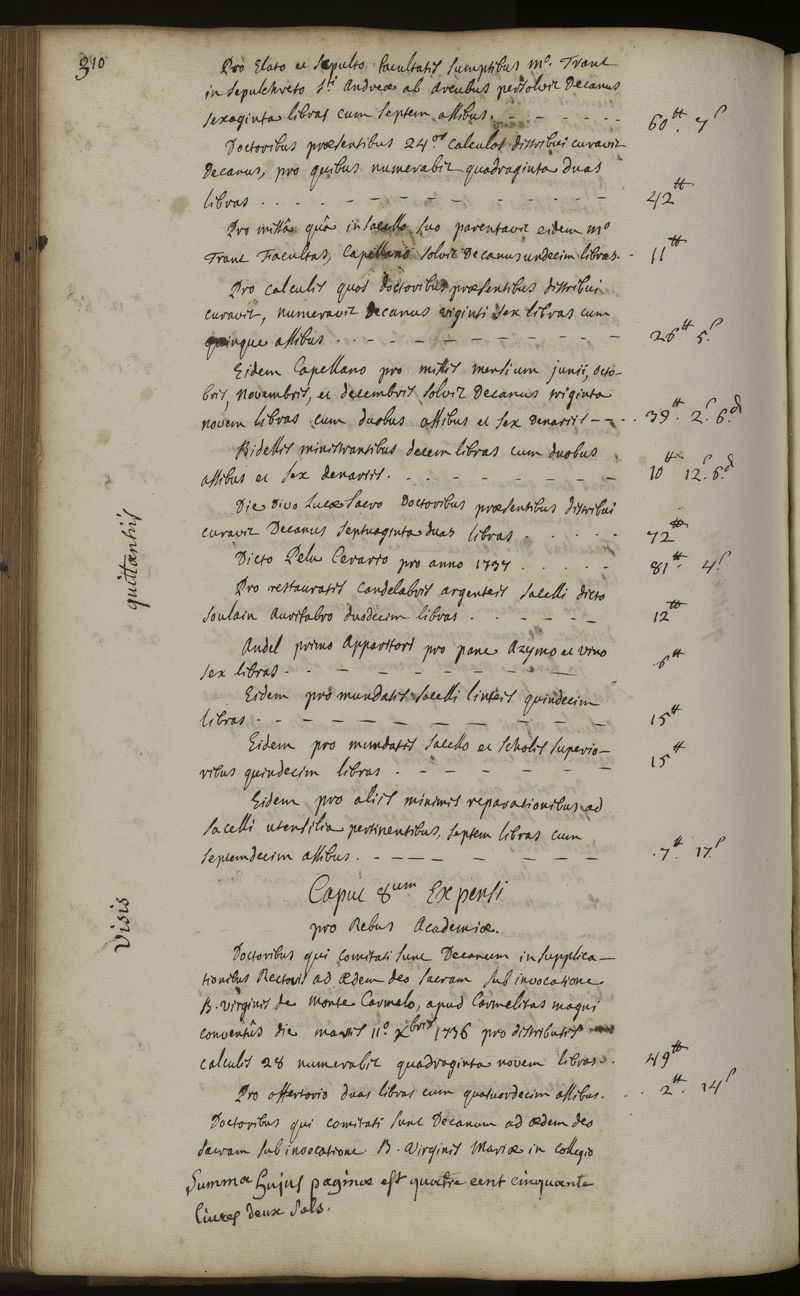 310
Pro Elato et Sepulto facultatis sumptibus m°. Tranc
in sepulchreto Sti Andreæ ab Arcubus persolvit Decanus
sexaginta libras cum septem assibus. 60tt. 7s
Doctoribus præsentibus 24or calculos distribui curavit
Decanus, pro quibus numerabit quadraginta duas
libras 42tt
Pro missâ quâ in sacello suo parentavit eidem m°
Tranc Facultas, Capellano solvit Decanus undecim libras. 11tt
Pro calculis quos doctoribus præsentibus distribui
curavit, numeravit Decanus viginti sex libras cum
quinque assibus 26tt 5s
Eidem Capellano pro missis mensium junii, octo-
bris, novembris, et decembris solvit Decanus triginta
novem libras cum duobus assibus et sex Denariis 39tt. 2s. 6d
Bidellis ministrantibus decem libras cum duobus
assibus et sex denariis. 10tt 12s. 6d
Die Divo Lucæ Sacro Doctoribus præsentibus distribui
curavit Decanus septuaginta duas libras 72tt
Dicto Pelu Cerario pro anno 1737 81tt. 4s
quittantiis
Pro restauratis candelabris argenteis sacelli dicto
Soulain Aurifabro duodecim libras 12tt
Andel primo Apparitori pro pane Azymo et vino
sex libras 6tt
Eidem pro mundatis sacelli linteis quindecim
libras 15tt
Eidem pro mundatis sacello et scholis superio-
ribus quindecim libras 15tt
Eidem pro aliis minimis reparationibus ad
sacelli utensilia pertinentibus, septem libras cum
septemdecim assibus. 7tt. 17s
Caput 8um Expensi
pro Rebus Academiæ.
Visis
Doctoribus qui comitati sunt Decanum in supplica-
tionibus Rectoris ad Ædem deo sacram sub invocatione
B. virginis de monte Carmelo, apud Carmelitas magni
conventûs die martis 11° Xbris 1736 pro distributis
calculis 28 numerabit quadraginta novem libras. 49tt
Pro offertorio duas libras cum quatuordecim assibus. 2tt. 14s
Doctoribus qui comitati sunt Decanum ad ædem deo
sacram sub invocatione B. Virginis Mariæ in collegio
Summa hujus paginæ est quatre cent cinquante
livres deux sols.